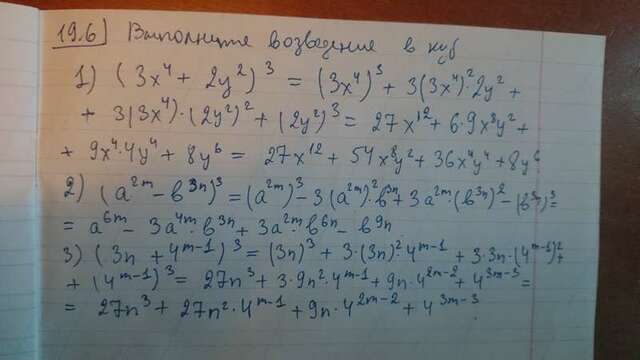 19.6) Выполните возведение в куб
1) (3x⁴ + 2y²)³ = (3x⁴)³ + 3(3x⁴)²·2y² +
+ 3(3x⁴)·(2y²)² + (2y²)³ = 27x¹² + 6·9x⁸y² +
+ 9x⁴·4y⁴ + 8y⁶ = 27x¹² + 54x⁸y² + 36x⁴y⁴ + 8y⁶
2) (a²ᵐ - b³ⁿ)³ = (a²ᵐ)³ - 3(a²ᵐ)²·b³ⁿ + 3a²ᵐ·(b³ⁿ)² - (b³ⁿ)³ =
= a⁶ᵐ - 3a⁴ᵐ·b³ⁿ + 3a²ᵐ·b⁶ⁿ - b⁹ⁿ
3) (3n + 4ᵐ⁻¹)³ = (3n)³ + 3·(3n)²·4ᵐ⁻¹ + 3·3n·(4ᵐ⁻¹)² +
+ (4ᵐ⁻¹)³ = 27n³ + 3·9n²·4ᵐ⁻¹ + 9n·4²ᵐ⁻² + 4³ᵐ⁻³ =
= 27n³ + 27n²·4ᵐ⁻¹ + 9n·4²ᵐ⁻² + 4³ᵐ⁻³